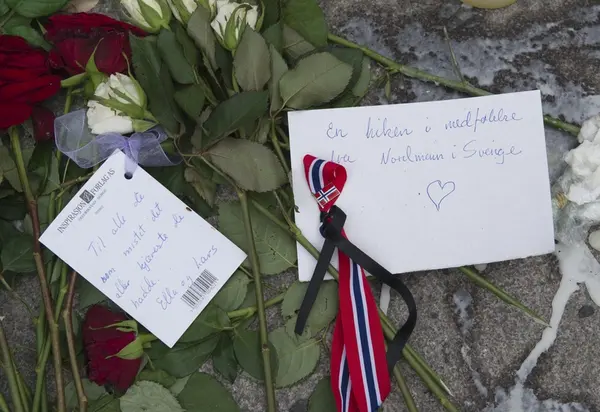 INSPIRASJON FORLAG AS
Til alle de
som mistet det
aller kjæreste de
hadde.
Ella og Lars
En liken i medfølelse
fra Nordmenn i Sverige